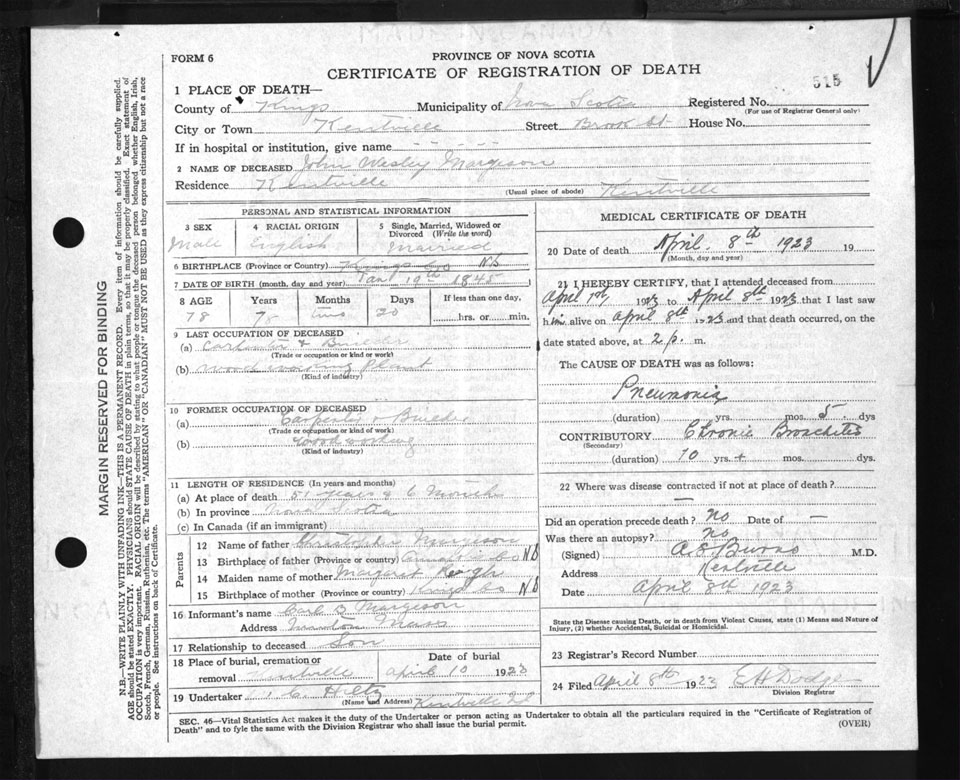 FORM 6
PROVINCE OF NOVA SCOTIA
CERTIFICATE OF REGISTRATION OF DEATH
515
1 PLACE OF DEATH—
County of Kings Municipality of Nova Scotia Registered No.
(For use of Registrar General only)
City or Town Kentville Street Brook St. House No.
If in hospital or institution, give name
2 NAME OF DECEASED John Wesley Margeson
Residence Kentville (Usual place of abode) Kentville
PERSONAL AND STATISTICAL INFORMATION
3 SEX Male
4 RACIAL ORIGIN English
5 Single, Married, Widowed or Divorced (Write the word) Married
6 BIRTHPLACE (Province or Country) Kings Co NS
7 DATE OF BIRTH (month, day and year) Jan 19th 1845
8 AGE Years Months Days If less than one day,
78 78 two 20 hrs. or min.
9 LAST OCCUPATION OF DECEASED
(a) Carpenter & Builder
(Trade or occupation or kind of work)
(b) wood working plant
(Kind of industry)
10 FORMER OCCUPATION OF DECEASED
(a) Carpenter Builder
(Trade or occupation or kind of work)
(b) Woodworking
(Kind of industry)
11 LENGTH OF RESIDENCE (In years and months)
(a) At place of death 51 years & 6 Months
(b) In province Nova Scotia
(c) In Canada (if an immigrant)
Parents
12 Name of father Christopher Margeson
13 Birthplace of father (Province or country) Co
14 Maiden name of mother Margaret
15 Birthplace of mother (Province or country) Kings Co
16 Informant's name Carl B Margeson
Address Mass
17 Relationship to deceased Son
18 Place of burial, cremation or removal Kentville Date of burial April 10 1923
19 Undertaker Hiltz (Name and Address) Kentville
MEDICAL CERTIFICATE OF DEATH
20 Date of death April 8th 1923 19
(Month, day and year)
21 I HEREBY CERTIFY, that I attended deceased from
April 1st 1923 to April 8th 1923 that I last saw
him alive on April 8th 1923 and that death occurred, on the
date stated above, at 2 p. m.
The CAUSE OF DEATH was as follows:
Pneumonia
(duration) yrs. mos. 5 dys
CONTRIBUTORY Chronic Bronchitis
(Secondary)
(duration) 10 yrs + mos. dys.
22 Where was disease contracted if not at place of death?
—
Did an operation precede death? No Date of —
Was there an autopsy? No
(Signed) A S Burns M.D.
Address Kentville
Date April 8th 1923
State the Disease causing Death, or in death from Violent Causes, state (1) Means and Nature of Injury, (2) whether Accidental, Suicidal or Homicidal.
23 Registrar's Record Number
24 Filed April 8th 1923 E H Dodge
Division Registrar
SEC. 46—Vital Statistics Act makes it the duty of the Undertaker or person acting as Undertaker to obtain all the particulars required in the "Certificate of Registration of
Death" and to fyle the same with the Division Registrar who shall issue the burial permit.
(OVER)
MARGIN RESERVED FOR BINDING
N.B.—WRITE PLAINLY WITH UNFADING INK—THIS IS A PERMANENT RECORD. Every item of information should be carefully supplied.
AGE should be stated EXACTLY. PHYSICIANS should STATE CAUSE OF DEATH in plain terms, so that it may be properly classified. Exact statement of
OCCUPATION is very important. RACIAL ORIGIN will be described by stating to what people or tongue the deceased person belonged whether English, Irish,
Scotch, French, German, Russian, Ruthenian, etc. The terms "AMERICAN" OR "CANADIAN" MUST NOT BE USED as they express citizenship but not a race
or people. See instructions on back of Certificate.